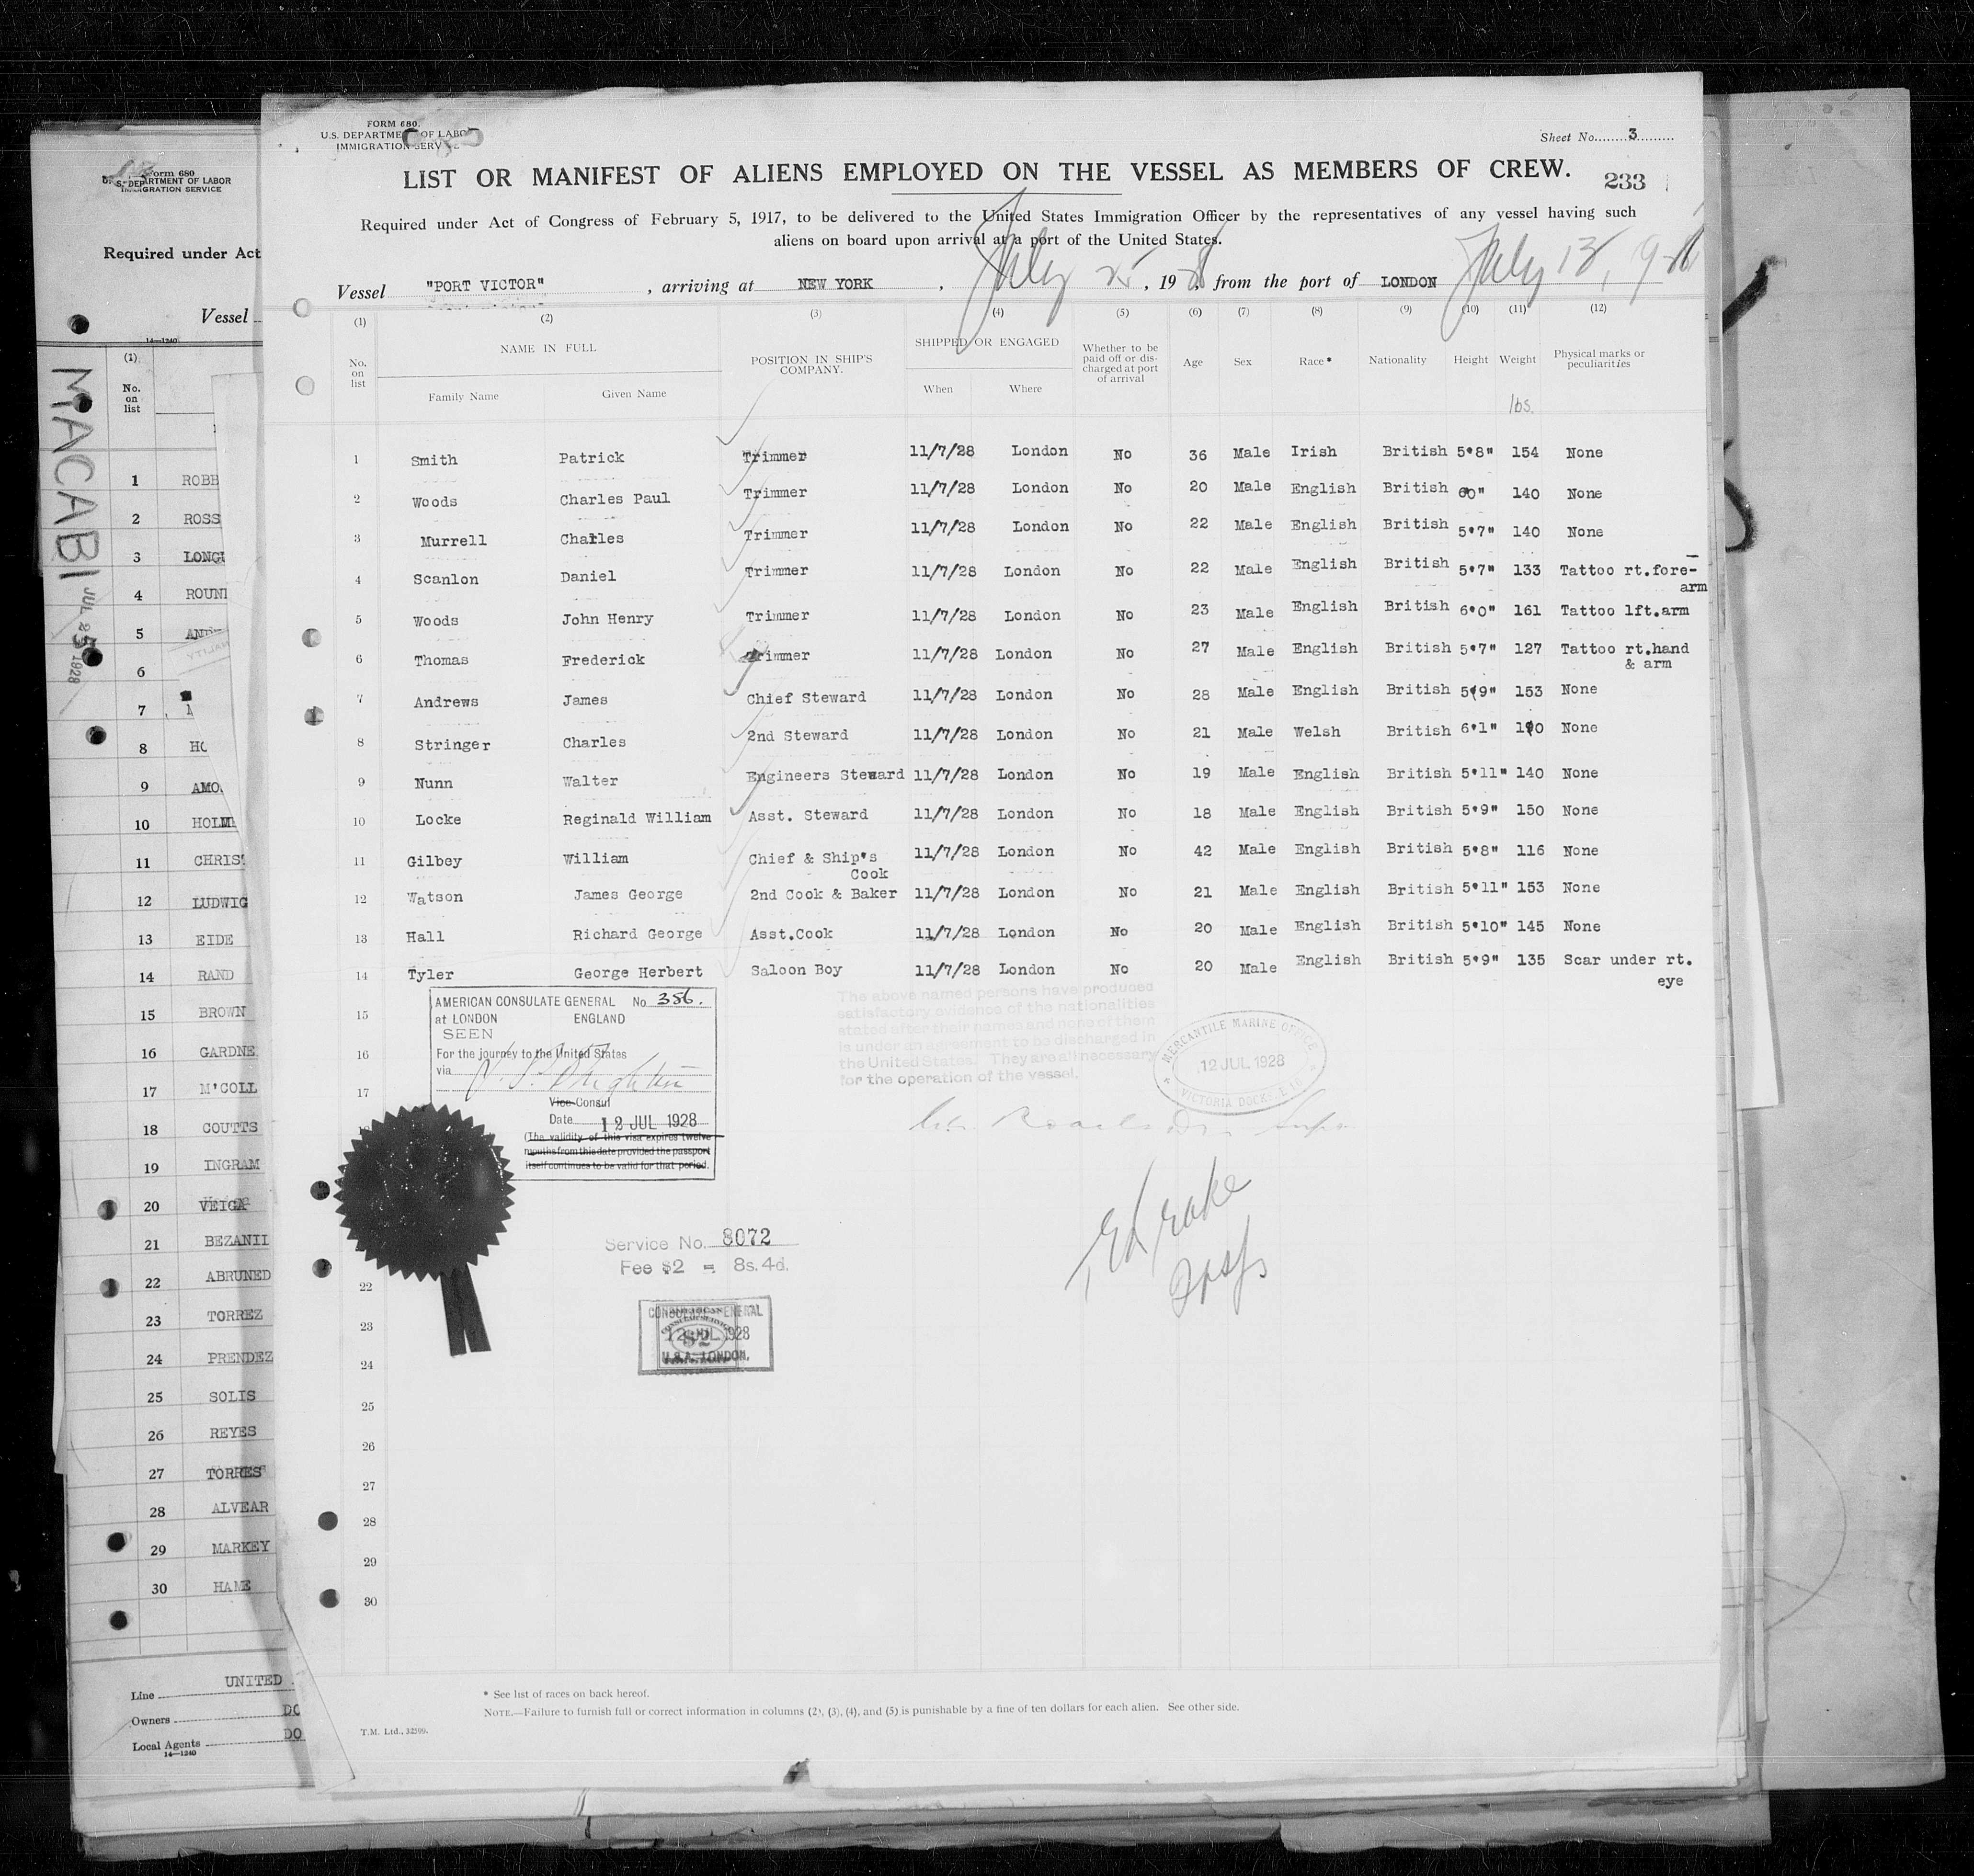 FORM 680.
U.S. DEPARTMENT OF LABOR
IMMIGRATION SERVICE
Sheet No. 3
LIST OR MANIFEST OF ALIENS EMPLOYED ON THE VESSEL AS MEMBERS OF CREW.
233
Required under Act of Congress of February 5, 1917, to be delivered to the United States Immigration Officer by the representatives of any vessel having such
aliens on board upon arrival at a port of the United States.
Vessel "PORT VICTOR", arriving at NEW YORK, July 25, 1928 from the port of LONDON July 13, 1928
(1) (2) (3) (4) (5) (6) (7) (8) (9) (10) (11) (12)
No. on list NAME IN FULL Family Name Given Name POSITION IN SHIP'S COMPANY. SHIPPED OR ENGAGED When Where Whether to be paid off or discharged at port of arrival Age Sex Race* Nationality Height Weight Physical marks or peculiarities
lbs.
1 Smith Patrick Trimmer 11/7/28 London No 36 Male Irish British 5'8" 154 None
2 Woods Charles Paul Trimmer 11/7/28 London No 20 Male English British 6'0" 140 None
3 Murrell Charles Trimmer 11/7/28 London No 22 Male English British 5'7" 140 None
4 Scanlon Daniel Trimmer 11/7/28 London No 22 Male English British 5'7" 133 Tattoo rt.fore-
arm
5 Woods John Henry Trimmer 11/7/28 London No 23 Male English British 6'0" 161 Tattoo lft.arm
6 Thomas Frederick Trimmer 11/7/28 London No 27 Male English British 5'7" 127 Tattoo rt.hand
& arm
7 Andrews James Chief Steward 11/7/28 London No 28 Male English British 5'9" 153 None
8 Stringer Charles 2nd Steward 11/7/28 London No 21 Male Welsh British 6'1" None
9 Nunn Walter Engineers Steward 11/7/28 London No 19 Male English British 5'11" 140 None
10 Locke Reginald William Asst. Steward 11/7/28 London No 18 Male English British 5'9" 150 None
11 Gilbey William Chief & Ship's 11/7/28 London No 42 Male English British 5'8" 116 None
Cook
12 Watson James George 2nd Cook & Baker 11/7/28 London No 21 Male English British 5'11" 153 None
13 Hall Richard George Asst.Cook 11/7/28 London No 20 Male English British 5'10" 145 None
14 Tyler George Herbert Saloon Boy 11/7/28 London No 20 Male English British 5'9" 135 Scar under rt.
eye
15
16
17
22
23
24
25
26
27
28
29
30
AMERICAN CONSULATE GENERAL No 386.
at LONDON ENGLAND
SEEN
For the journey to the United States
via
Vice Consul
Date 12 JUL 1928
(The validity of this visa expires twelve
months from this date provided the passport
itself continues to be valid for that period.
The above named persons have produced
satisfactory evidence of the nationalities
stated after their names and none of them
is under an agreement to be discharged in
the United States. They are all necessary
for the operation of the vessel.
MERCANTILE MARINE OFFICE
12 JUL 1928
VICTORIA DOCKS. E.16
Service No. 8072
Fee $2 = 8s. 4d.
CONSULATE GENERAL
12 JUL 1928
U.S.A. LONDON.
* See list of races on back hereof.
NOTE.—Failure to furnish full or correct information in columns (2), (3), (4), and (5) is punishable by a fine of ten dollars for each alien. See other side.
T.M. Ltd., 32599.
Form 680
U. S. DEPARTMENT OF LABOR
IMMIGRATION SERVICE
Required under Act
Vessel
14—1240
(1)
No. on list
MACABI
JUL 25 1928
1 ROBB
2 ROSS
3 LONG
4 ROUN
5
6
7
8 HO
9 AMO
10 HOLM
11 CHRIS
12 LUDWIG
13 EIDE
14 RAND
15 BROWN
16 GARDNE
17 M'COLL
18 COUTTS
19 INGRAM
20 VEIGA
21 BEZANII
22 ABRUNED
23 TORREZ
24 PRENDEZ
25 SOLIS
26 REYES
27 TORRES
28 ALVEAR
29 MARKEY
30 HAME
Line UNITED
Owners DO
Local Agents DO
14—1240